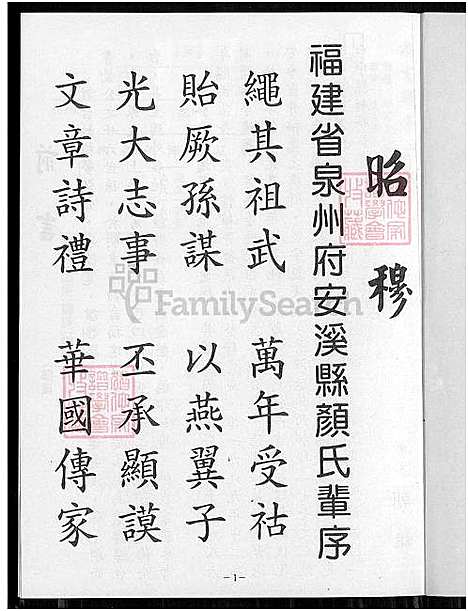 昭穆
福建省泉州府安溪縣顏氏輩序
繩其祖武 萬年受祜
貽厥孫謀 以燕翼子
光大志事 丕承顯謨
文章詩禮 華國傳家
FamilySearch
-1-